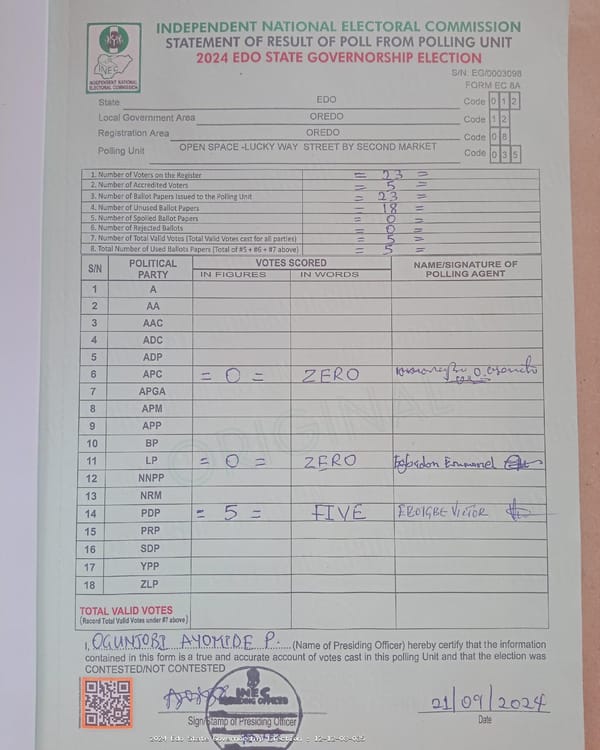 INEC
INDEPENDENT NATIONAL ELECTORAL COMMISSION
INDEPENDENT NATIONAL ELECTORAL COMMISSION
STATEMENT OF RESULT OF POLL FROM POLLING UNIT
2024 EDO STATE GOVERNORSHIP ELECTION
S/N: EG/0003098
FORM EC 8A
State EDO Code 0 1 2
Local Government Area OREDO Code 1 2
Registration Area OREDO Code 0 8
Polling Unit OPEN SPACE -LUCKY WAY STREET BY SECOND MARKET Code 0 3 5
1. Number of Voters on the Register = 23 =
2. Number of Accredited Voters = 5 =
3. Number of Ballot Papers Issued to the Polling Unit = 23 =
4. Number of Unused Ballot Papers = 18 =
5. Number of Spoiled Ballot Papers = 0 =
6. Number of Rejected Ballots = 0 =
7. Number of Total Valid Votes (Total Valid Votes cast for all parties) = 5 =
8. Total Number of Used Ballots Papers (Total of #5 + #6 + #7 above) = 5 =
S/N POLITICAL PARTY VOTES SCORED NAME/SIGNATURE OF POLLING AGENT
IN FIGURES IN WORDS
1 A
2 AA
3 AAC
4 ADC
5 ADP
6 APC = 0 = ZERO
7 APGA
8 APM
9 APP
10 BP
11 LP = 0 = ZERO Emmanuel
12 NNPP
13 NRM
14 PDP = 5 = FIVE EROIGBE VICTOR
15 PRP
16 SDP
17 YPP
18 ZLP
ORIGINAL
TOTAL VALID VOTES
(Record Total Valid Votes under #7 above)
I, OGUNTOBI AYOMIDE P. (Name of Presiding Officer) hereby certify that the information
contained in this form is a true and accurate account of votes cast in this polling Unit and that the election was
CONTESTED/NOT CONTESTED
INEC
PRESIDING OFFICER
21/09/2024
Sign/Stamp of Presiding Officer Date
2024 Edo State Governorship Election - 12-12-08-035